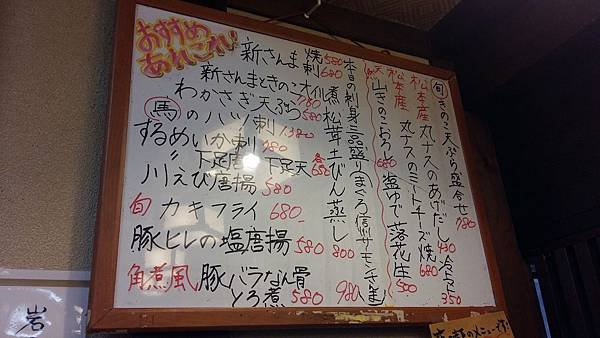 おすすめ
あれこれ!
新さんま焼 580
刺 680
新さんまときのこオイル煮
わかさぎ天ぷら 580
馬のハツ刺 1380
するめいか刺
下足唐 下足天 各 650
川えび唐揚 580
旬 カキフライ 680
豚ヒレの塩唐揚 580
角煮風 豚バラなん骨
とろ煮 580
旬 きのこ天ぷら盛合せ 780
松本産 丸ナスのあげだし 480 冷トマト 350
松本産 丸ナスのミートチーズ焼 680
天然 山きのこおろし 680 塩ゆで落花生 500
本日の刺身三品盛り まぐろ 信州サーモン さんま 980
松茸土びん蒸し 800
岩